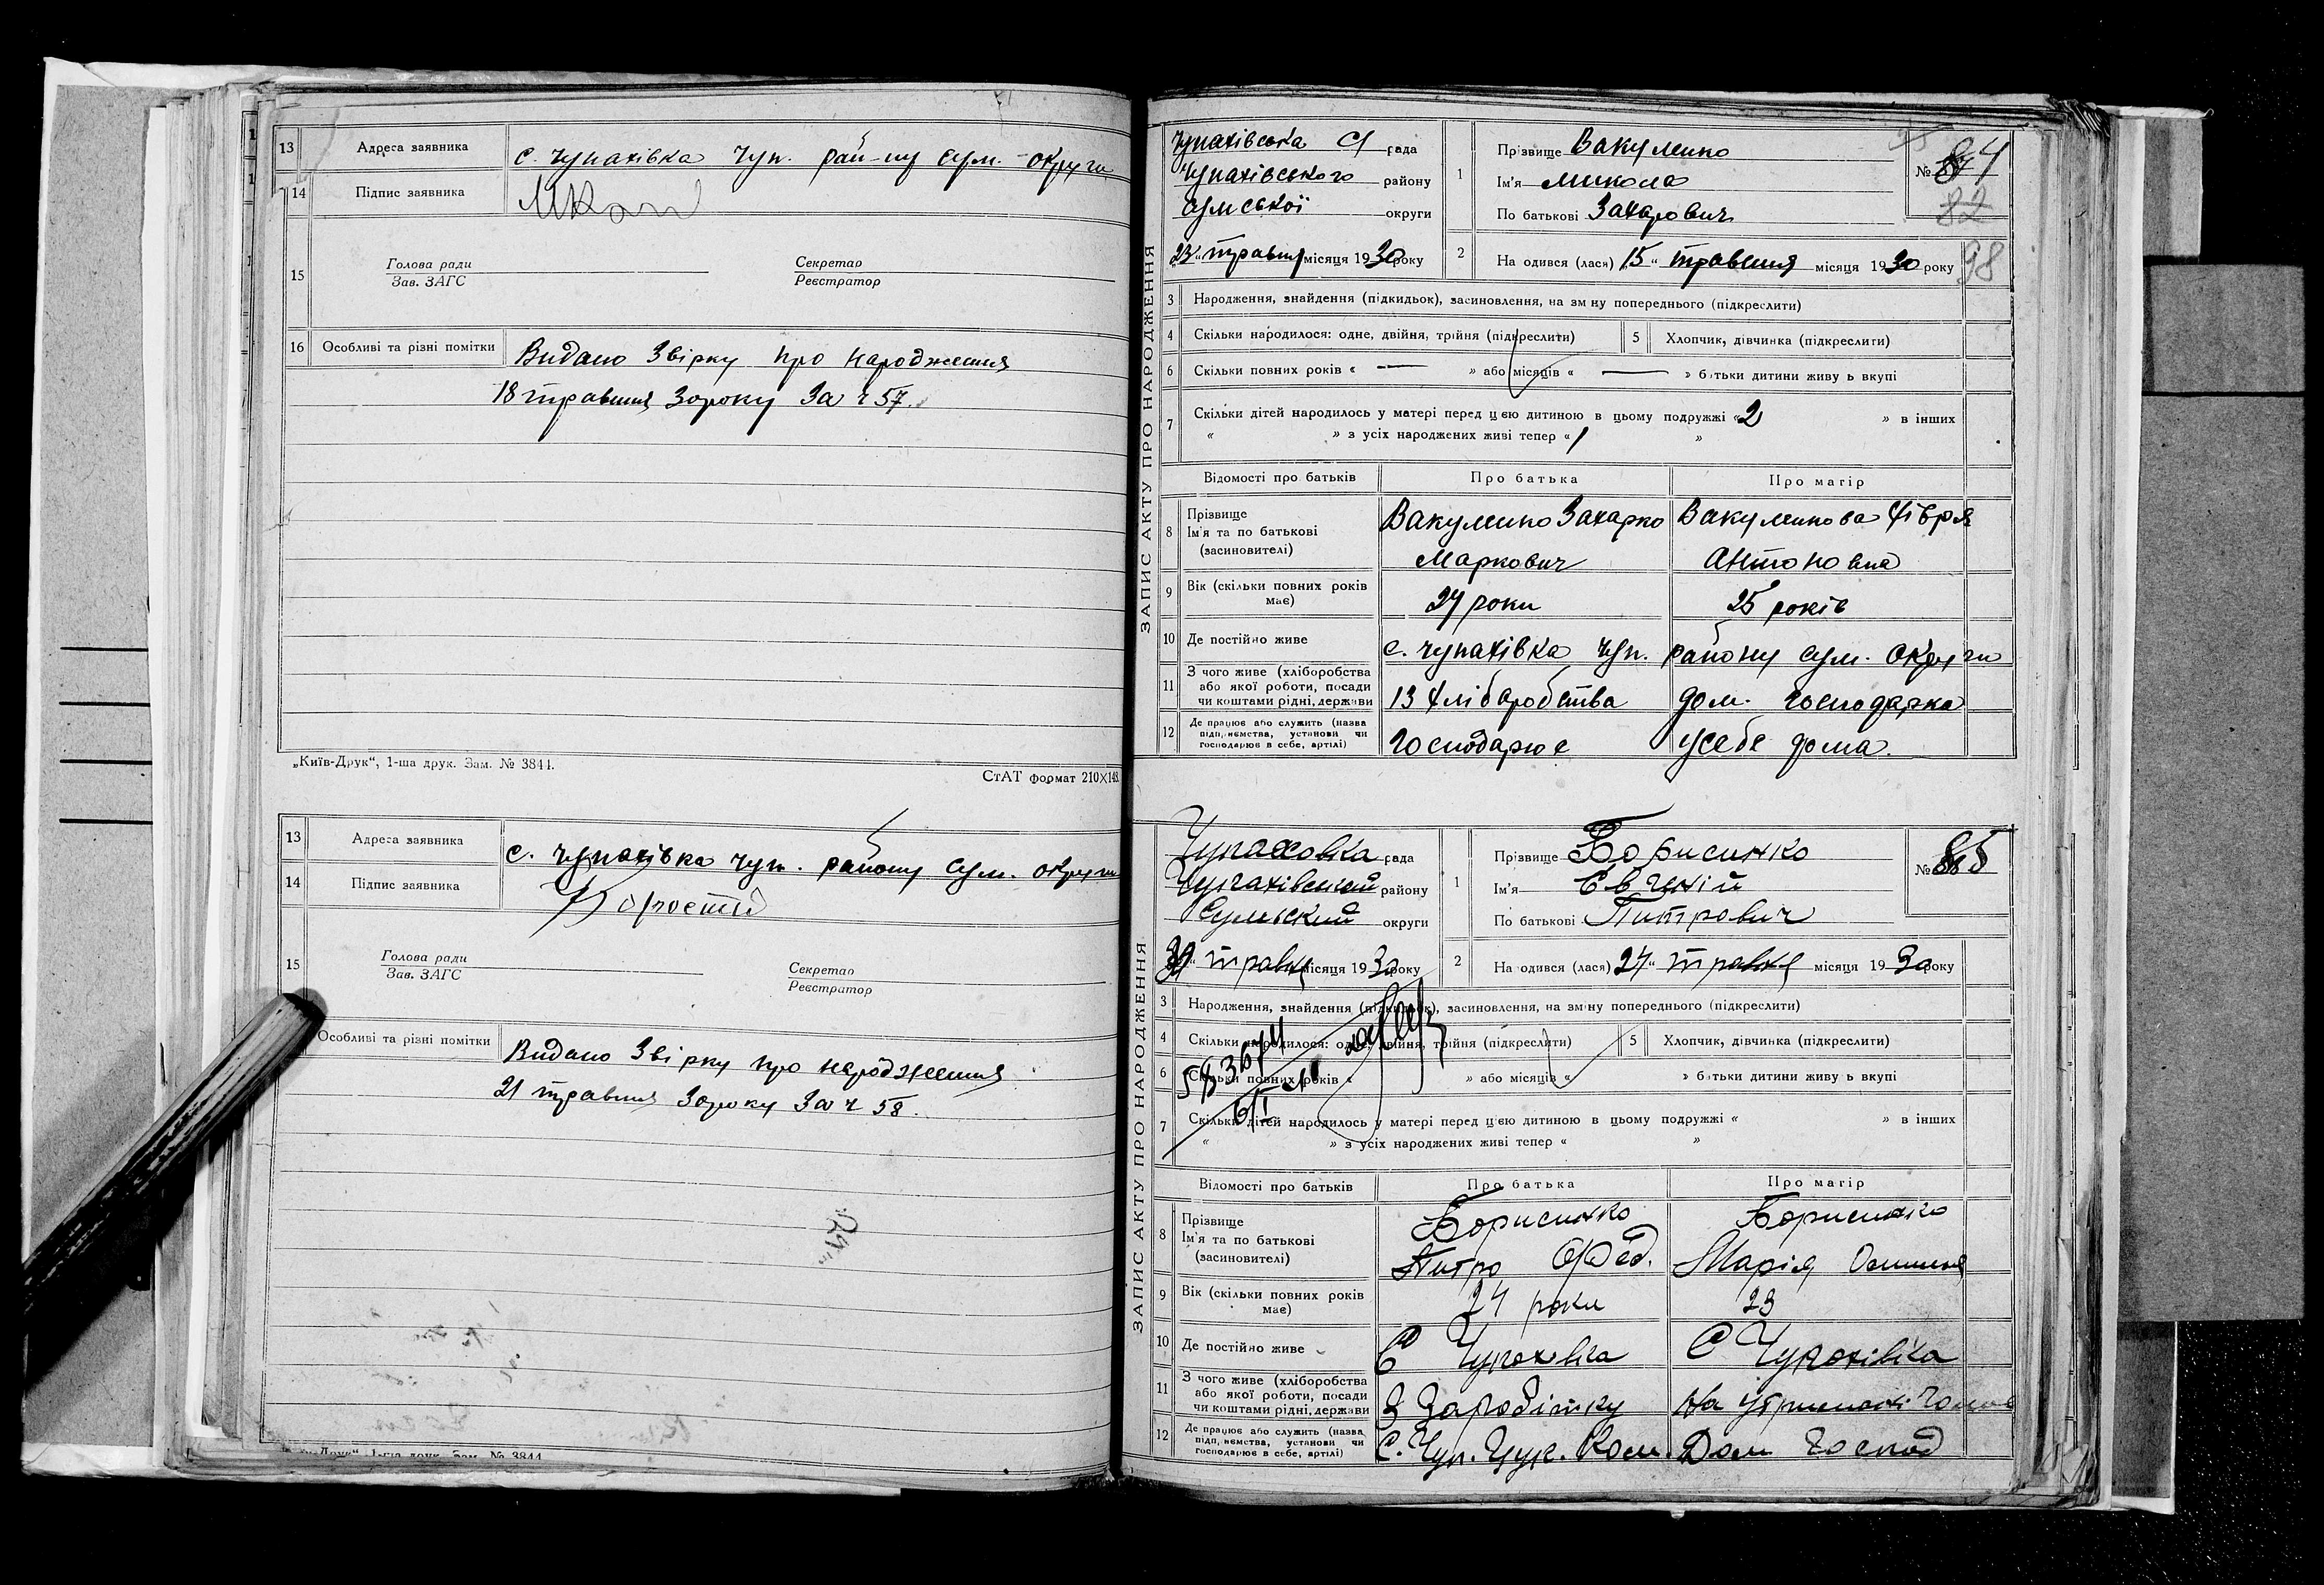 13 Адреса заявника с. Чупахівка Чуп. рай-ну Сум. округи
14 Підпис заявника
15 Голова ради Секретар
Зав. ЗАГС Реєстратор
16 Особливі та різні помітки Видано Звірку про народження
18 травня 30року За ч 57.
„Київ-Друк“, 1-ша друк. Зам. № 3844.
СтАТ формат 210×148.
13 Адреса заявника с. Чупахівка Чуп. району Сум. округи
14 Підпис заявника
15 Голова ради Секретар
Зав. ЗАГС Реєстратор
Особливі та різні помітки Видано Звірку про народження
21 травня 30року За ч 58.
1-ша друк. Зам. № 3844
ЗАПИС АКТУ ПРО НАРОДЖЕННЯ
Чупахівська С рада
Чупахівського району
Сумської округи
23 „ травня місяця 1930 року
1 Прізвище Вакуленко
Ім'я Микола
По батькові Захарович
№ 84
82
98
2 На одився (лася) 15 „ травня місяця 1930 року
3 Народження, знайдення (підкидьок), засиновлення, на зміну попереднього (підкреслити)
4 Скільки народилося: одне, двійня, трійня (підкреслити) 5 Хлопчик, дівчинка (підкреслити)
6 Скільки повних років « — » або місяців « — » батьки дитини живуть вкупі
7 Скільки дітей народилось у матері перед цією дитиною в цьому подружжі «2 » в інших
« » з усіх народжених живі тепер «1 »
Відомості про батьків Про батька Про матір
8 Прізвище Вакуленко Захарко Вакуленкова Фівря
Ім'я та по батькові Маркович Антоновна
(засиновителі)
9 Вік (скільки повних років має) 27 роки 25 років
10 Де постійно живе с. Чупахівка Чуп. району Сум. Округи
11 З чого живе (хліборобства
або якої роботи, посади
чи коштами рідні, держави ІЗ хлібаробства дом. господарка
12 Де працює або служить (назва
підприємства, установи чи
господарює в себе, артілі) господарює усебе дома.
ЗАПИС АКТУ ПРО НАРОДЖЕННЯ
Чупаховка рада
Чупахівский району
Сумський округи
травня місяця 1930 року
1 Прізвище Борисенко
Ім'я Євгеній
По батькові Питрович
№ 85
2 На одився (лася) 27 „ травня місяця 1930 року
3 Народження, знайдення (підкидьок), засиновлення, на зміну попереднього (підкреслити)
4 Скільки народилося: одне, двійня, трійня (підкреслити) 5 Хлопчик, дівчинка (підкреслити)
6 Скільки повних років « » або місяців « » батьки дитини живуть вкупі
7 Скільки дітей народилось у матері перед цією дитиною в цьому подружжі « » в інших
« » з усіх народжених живі тепер « »
Відомості про батьків Про батька Про матір
8 Прізвище Борисенко Борисенко
Ім'я та по батькові
(засиновителі) Питро Фед. Марія
9 Вік (скільки повних років має) 24 роки 23
10 Де постійно живе С Чупахівка С Чупахівка
11 З чого живе (хліборобства
або якої роботи, посади
чи коштами рідні, держави З Заробітку На утриманні
12 Де працює або служить (назва
підприємства, установи чи
господарює в себе, артілі) С. Чуп. Цук. Ком. Дом Господ